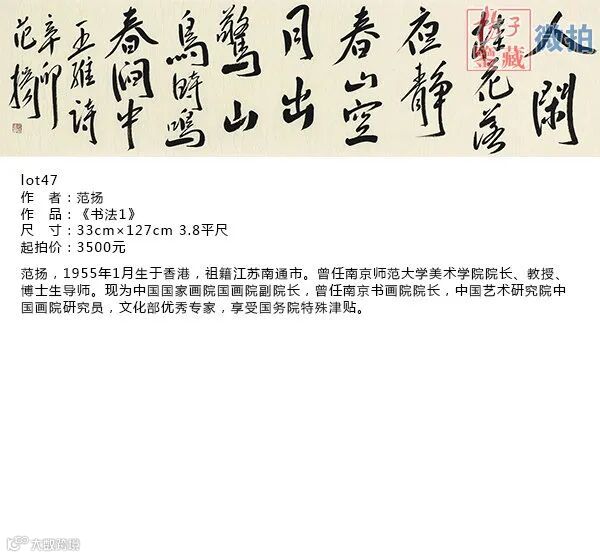 人閑
桂花落
夜靜
春山空
月出
驚山
鳥時鳴
春澗中
王維詩
辛卯
范揚
子
鉴藏
微拍
lot47
作 者：范扬
作 品：《书法1》
尺 寸：33cm×127cm 3.8平尺
起拍价：3500元
范扬，1955年1月生于香港，祖籍江苏南通市。曾任南京师范大学美术学院院长、教授、
博士生导师。现为中国国家画院国画院副院长，曾任南京书画院院长，中国艺术研究院中
国画院研究员，文化部优秀专家，享受国务院特殊津贴。
大数跨境